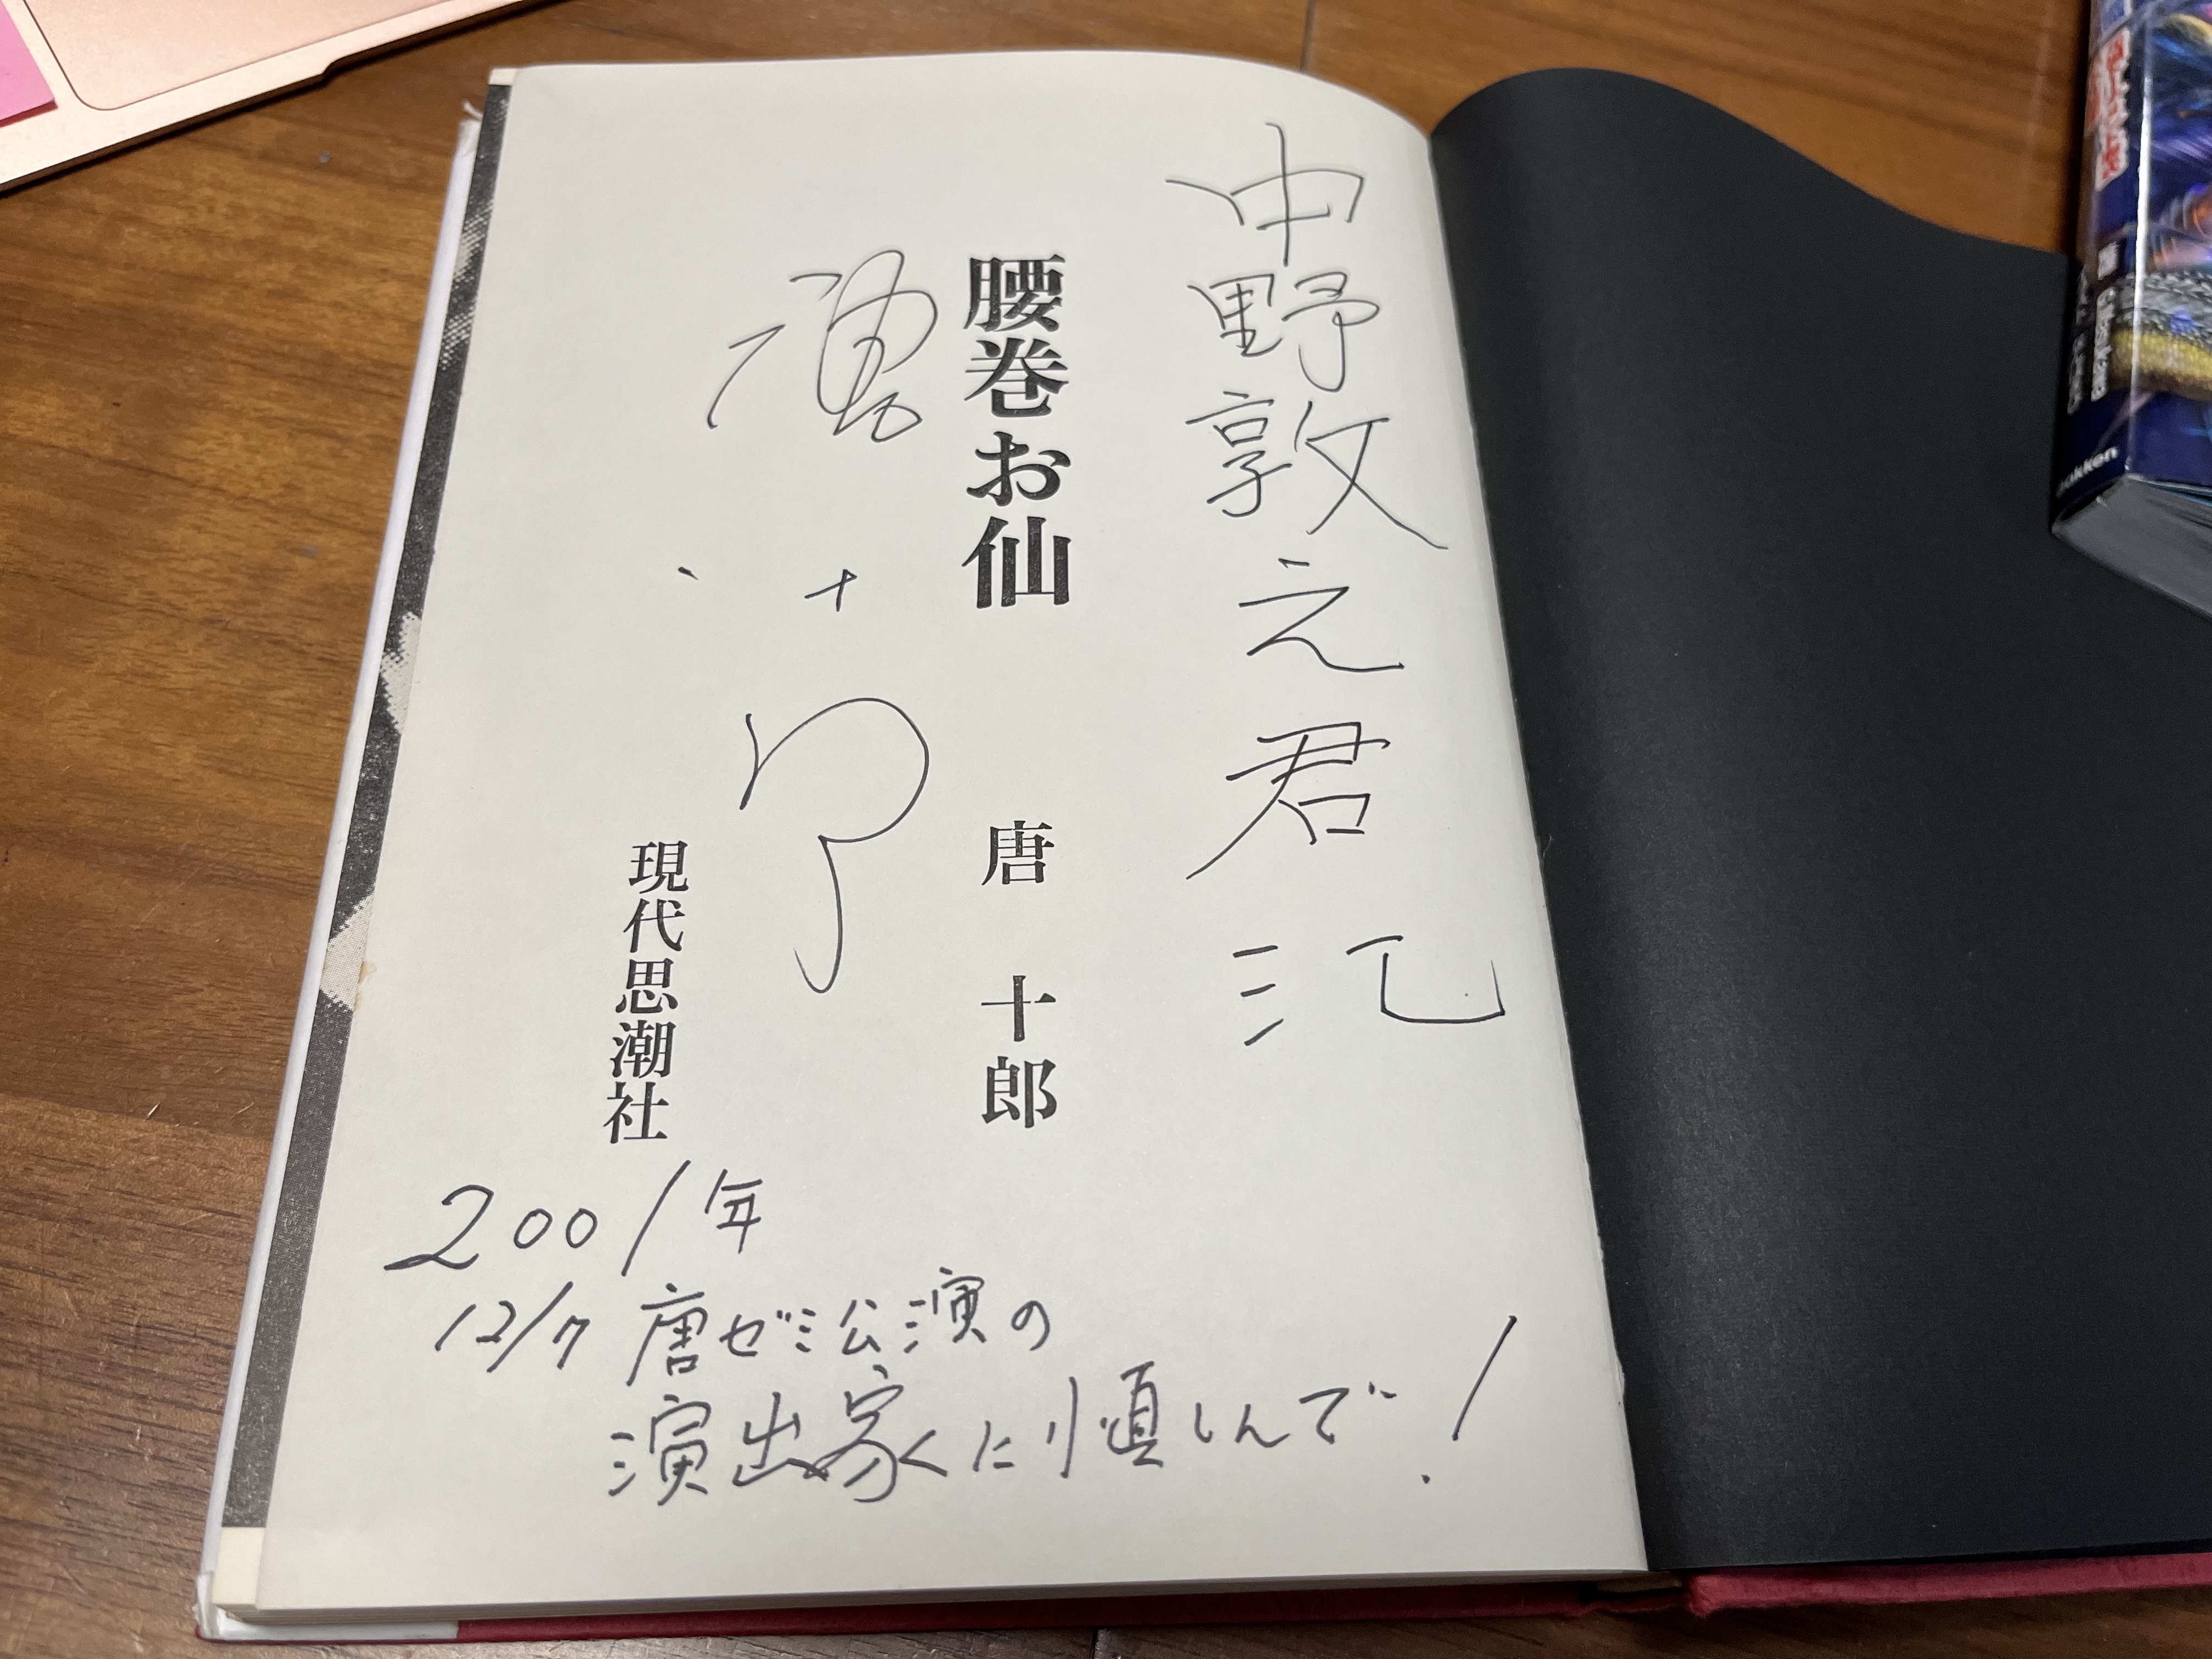 中野敦之君江
腰巻お仙
唐 十郎
唐十郎
現代思潮社
2001年
12/7 唐ゼミ公演の
演出家くに慎しんで!
Gakken